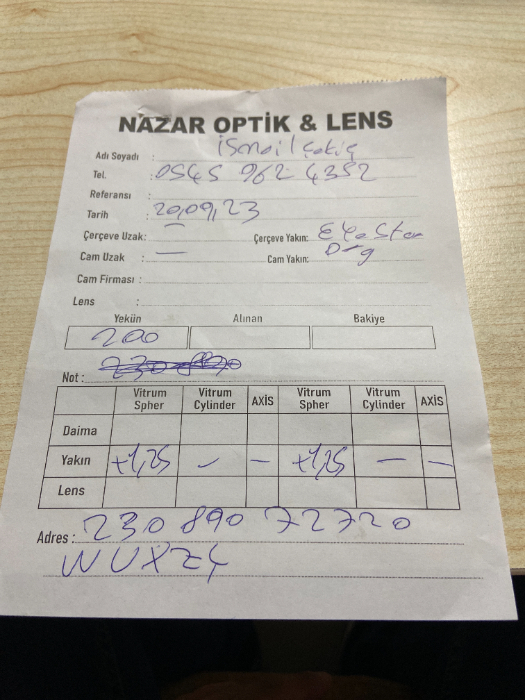 NAZAR OPTİK & LENS
Adı Soyadı : İsmail Çakıç
Tel. : 0545 962 4352
Referansı :
Tarih : 20,09,23
Çerçeve Uzak: Çerçeve Yakın:
Cam Uzak : — Cam Yakın: Org
Cam Firması :
Lens :
Yekün Alınan Bakiye
200
Not :
Vitrum Spher Vitrum Cylinder AXİS Vitrum Spher Vitrum Cylinder AXİS
Daima
Yakın +1,25 — — +1,25 — —
Lens
Adres : 230 890 72720
WUXZY